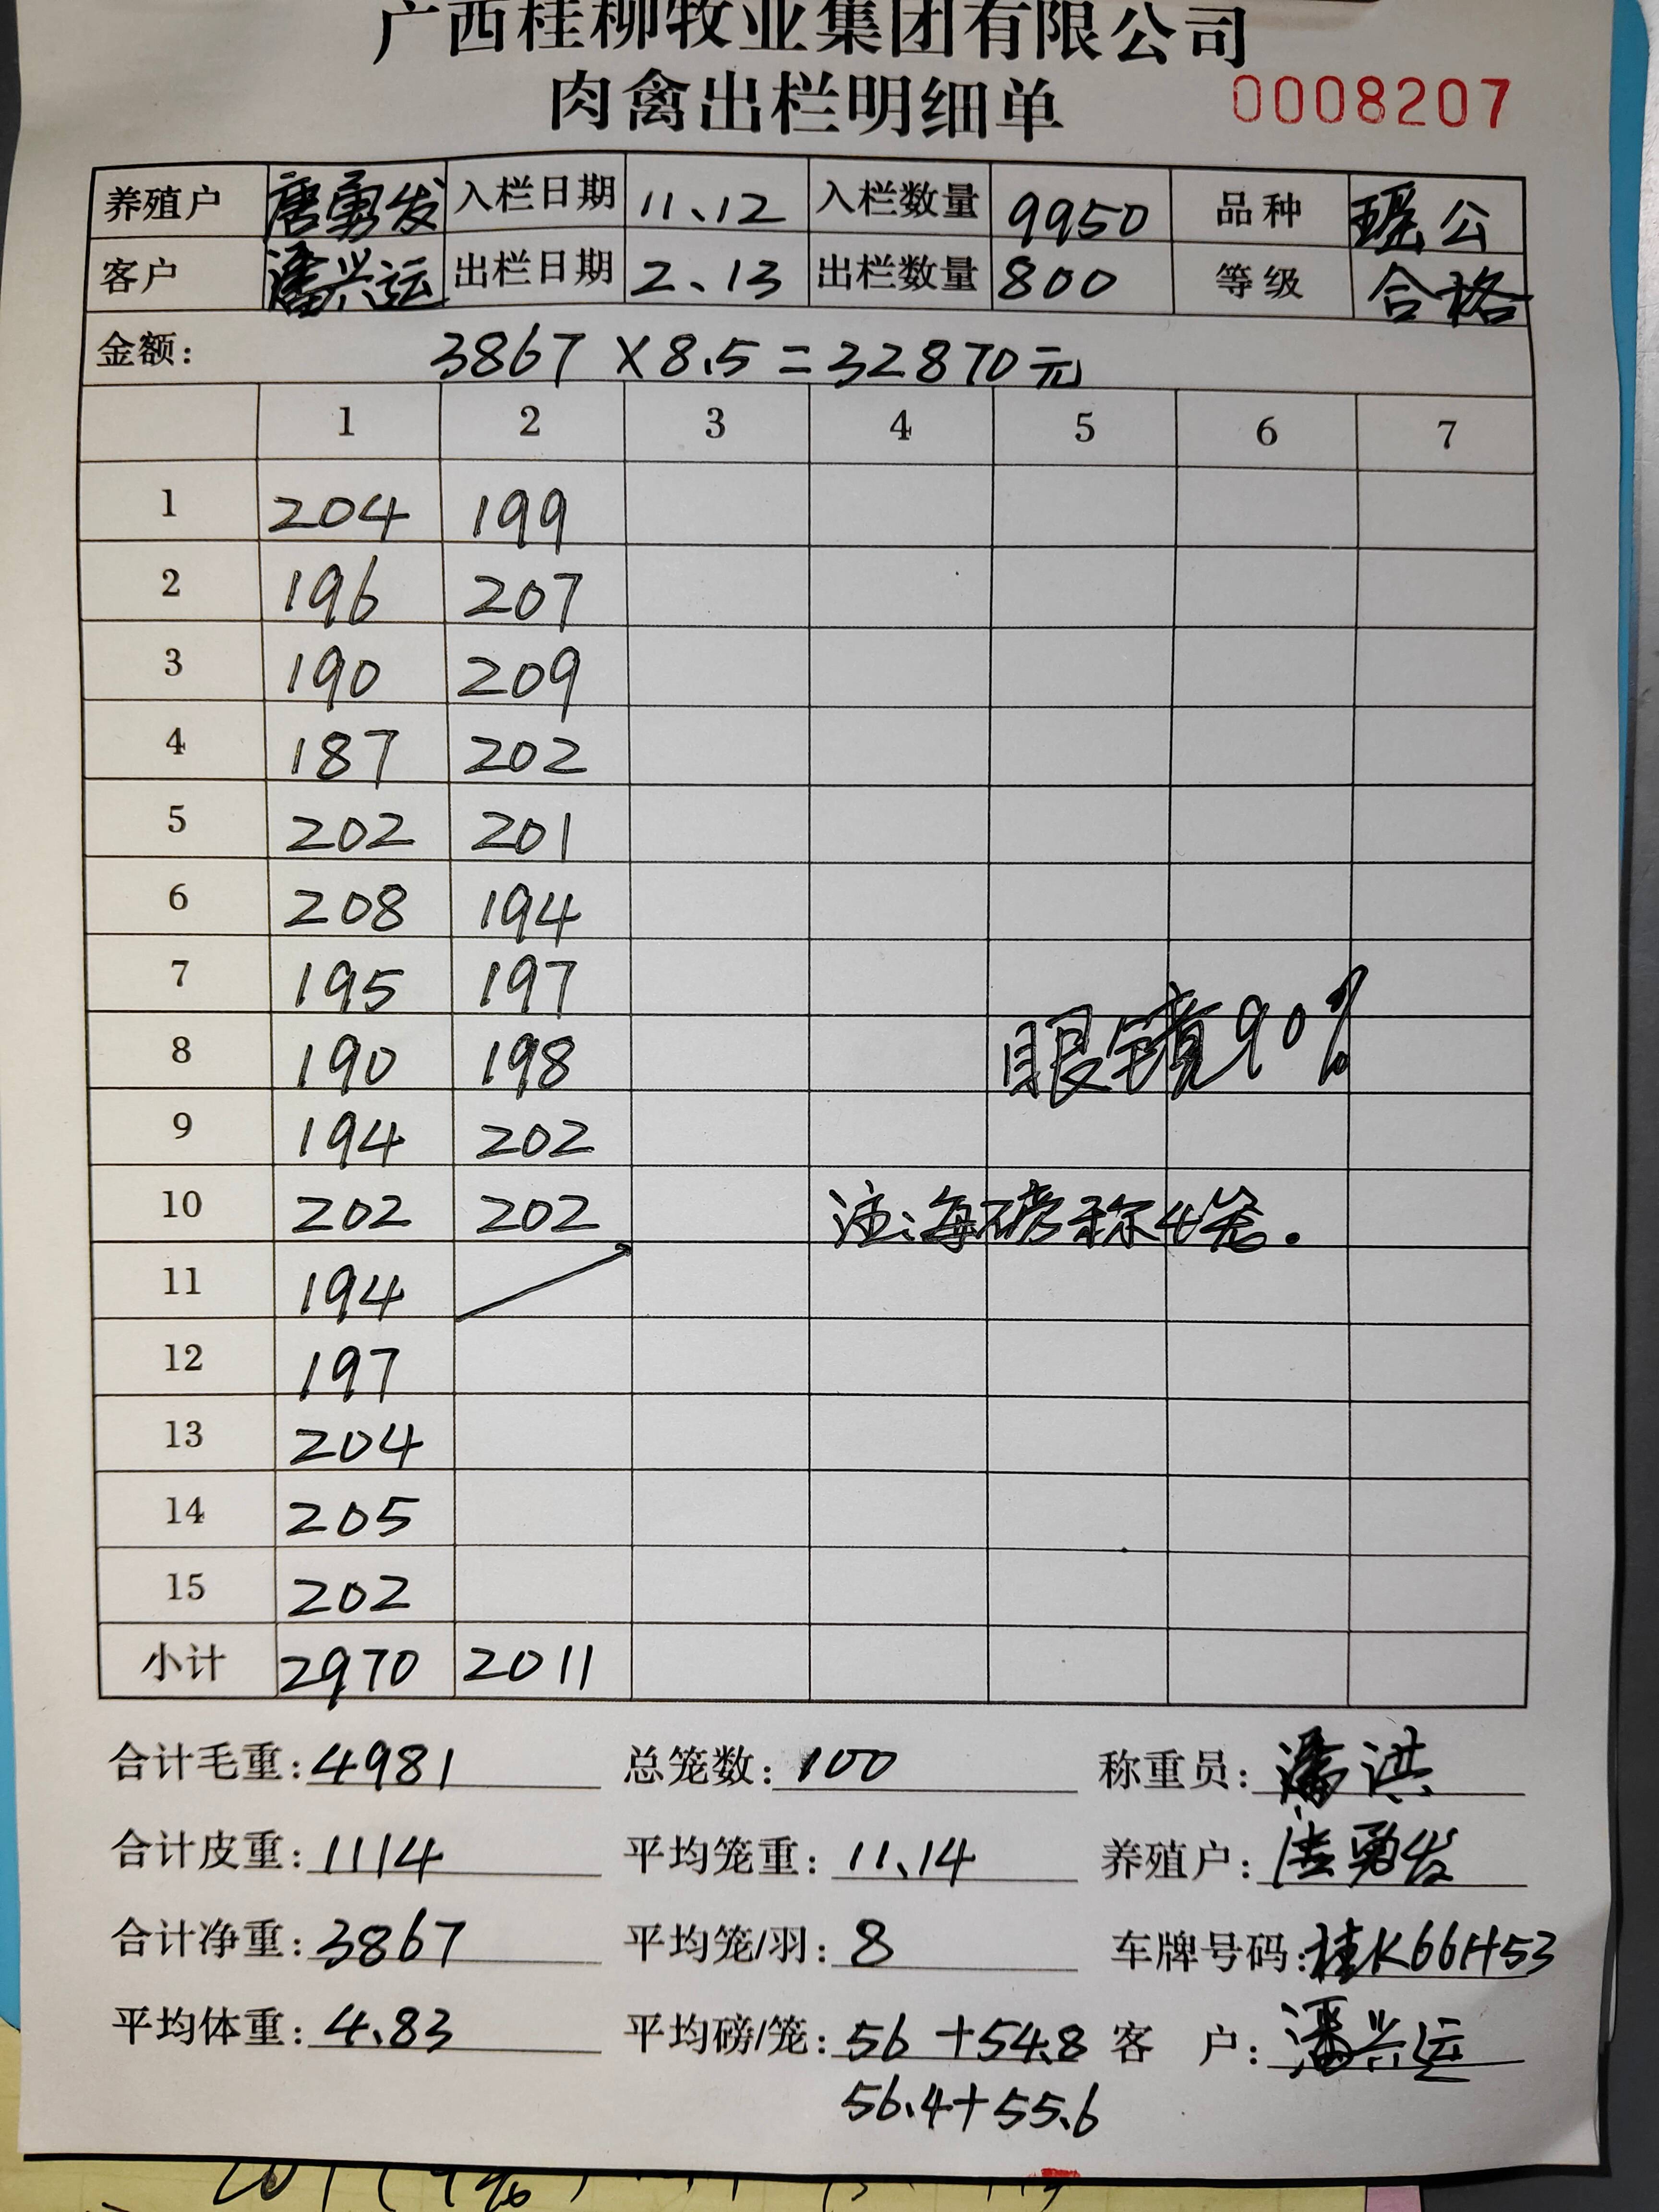 广西桂柳牧业集团有限公司
肉禽出栏明细单 0008207
养殖户 唐勇发 入栏日期 11、12 入栏数量 9950 品种 瑶公
客户 潘兴运 出栏日期 2、13 出栏数量 800 等级 合格
金额: 3867×8.5=32870元
1 2 3 4 5 6 7
1 204 199
2 196 207
3 190 209
4 187 202
5 202 201
6 208 194
7 195 197
8 190 198 眼镜90%
9 194 202
10 202 202 注:每磅称4笼.
11 194
12 197
13 204
14 205
15 202
小计 2970 2011
合计毛重: 4981 总笼数: 100 称重员: 潘洪
合计皮重: 1114 平均笼重: 11.14 养殖户: 唐勇发
合计净重: 3867 平均笼/羽: 8 车牌号码: 桂K66H53
平均体重: 4.83 平均磅/笼: 56+54.8 客户: 潘兴运
56.4+55.6